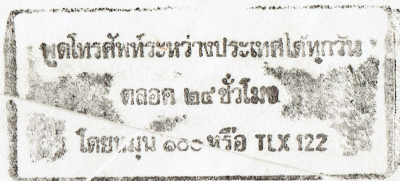 พูดโทรศัพท์ระหว่างประเทศได้ทุกวัน
ตลอด ๒๔ ชั่วโมง
โดยหมุน ๑๐๐ หรือ TLX 122